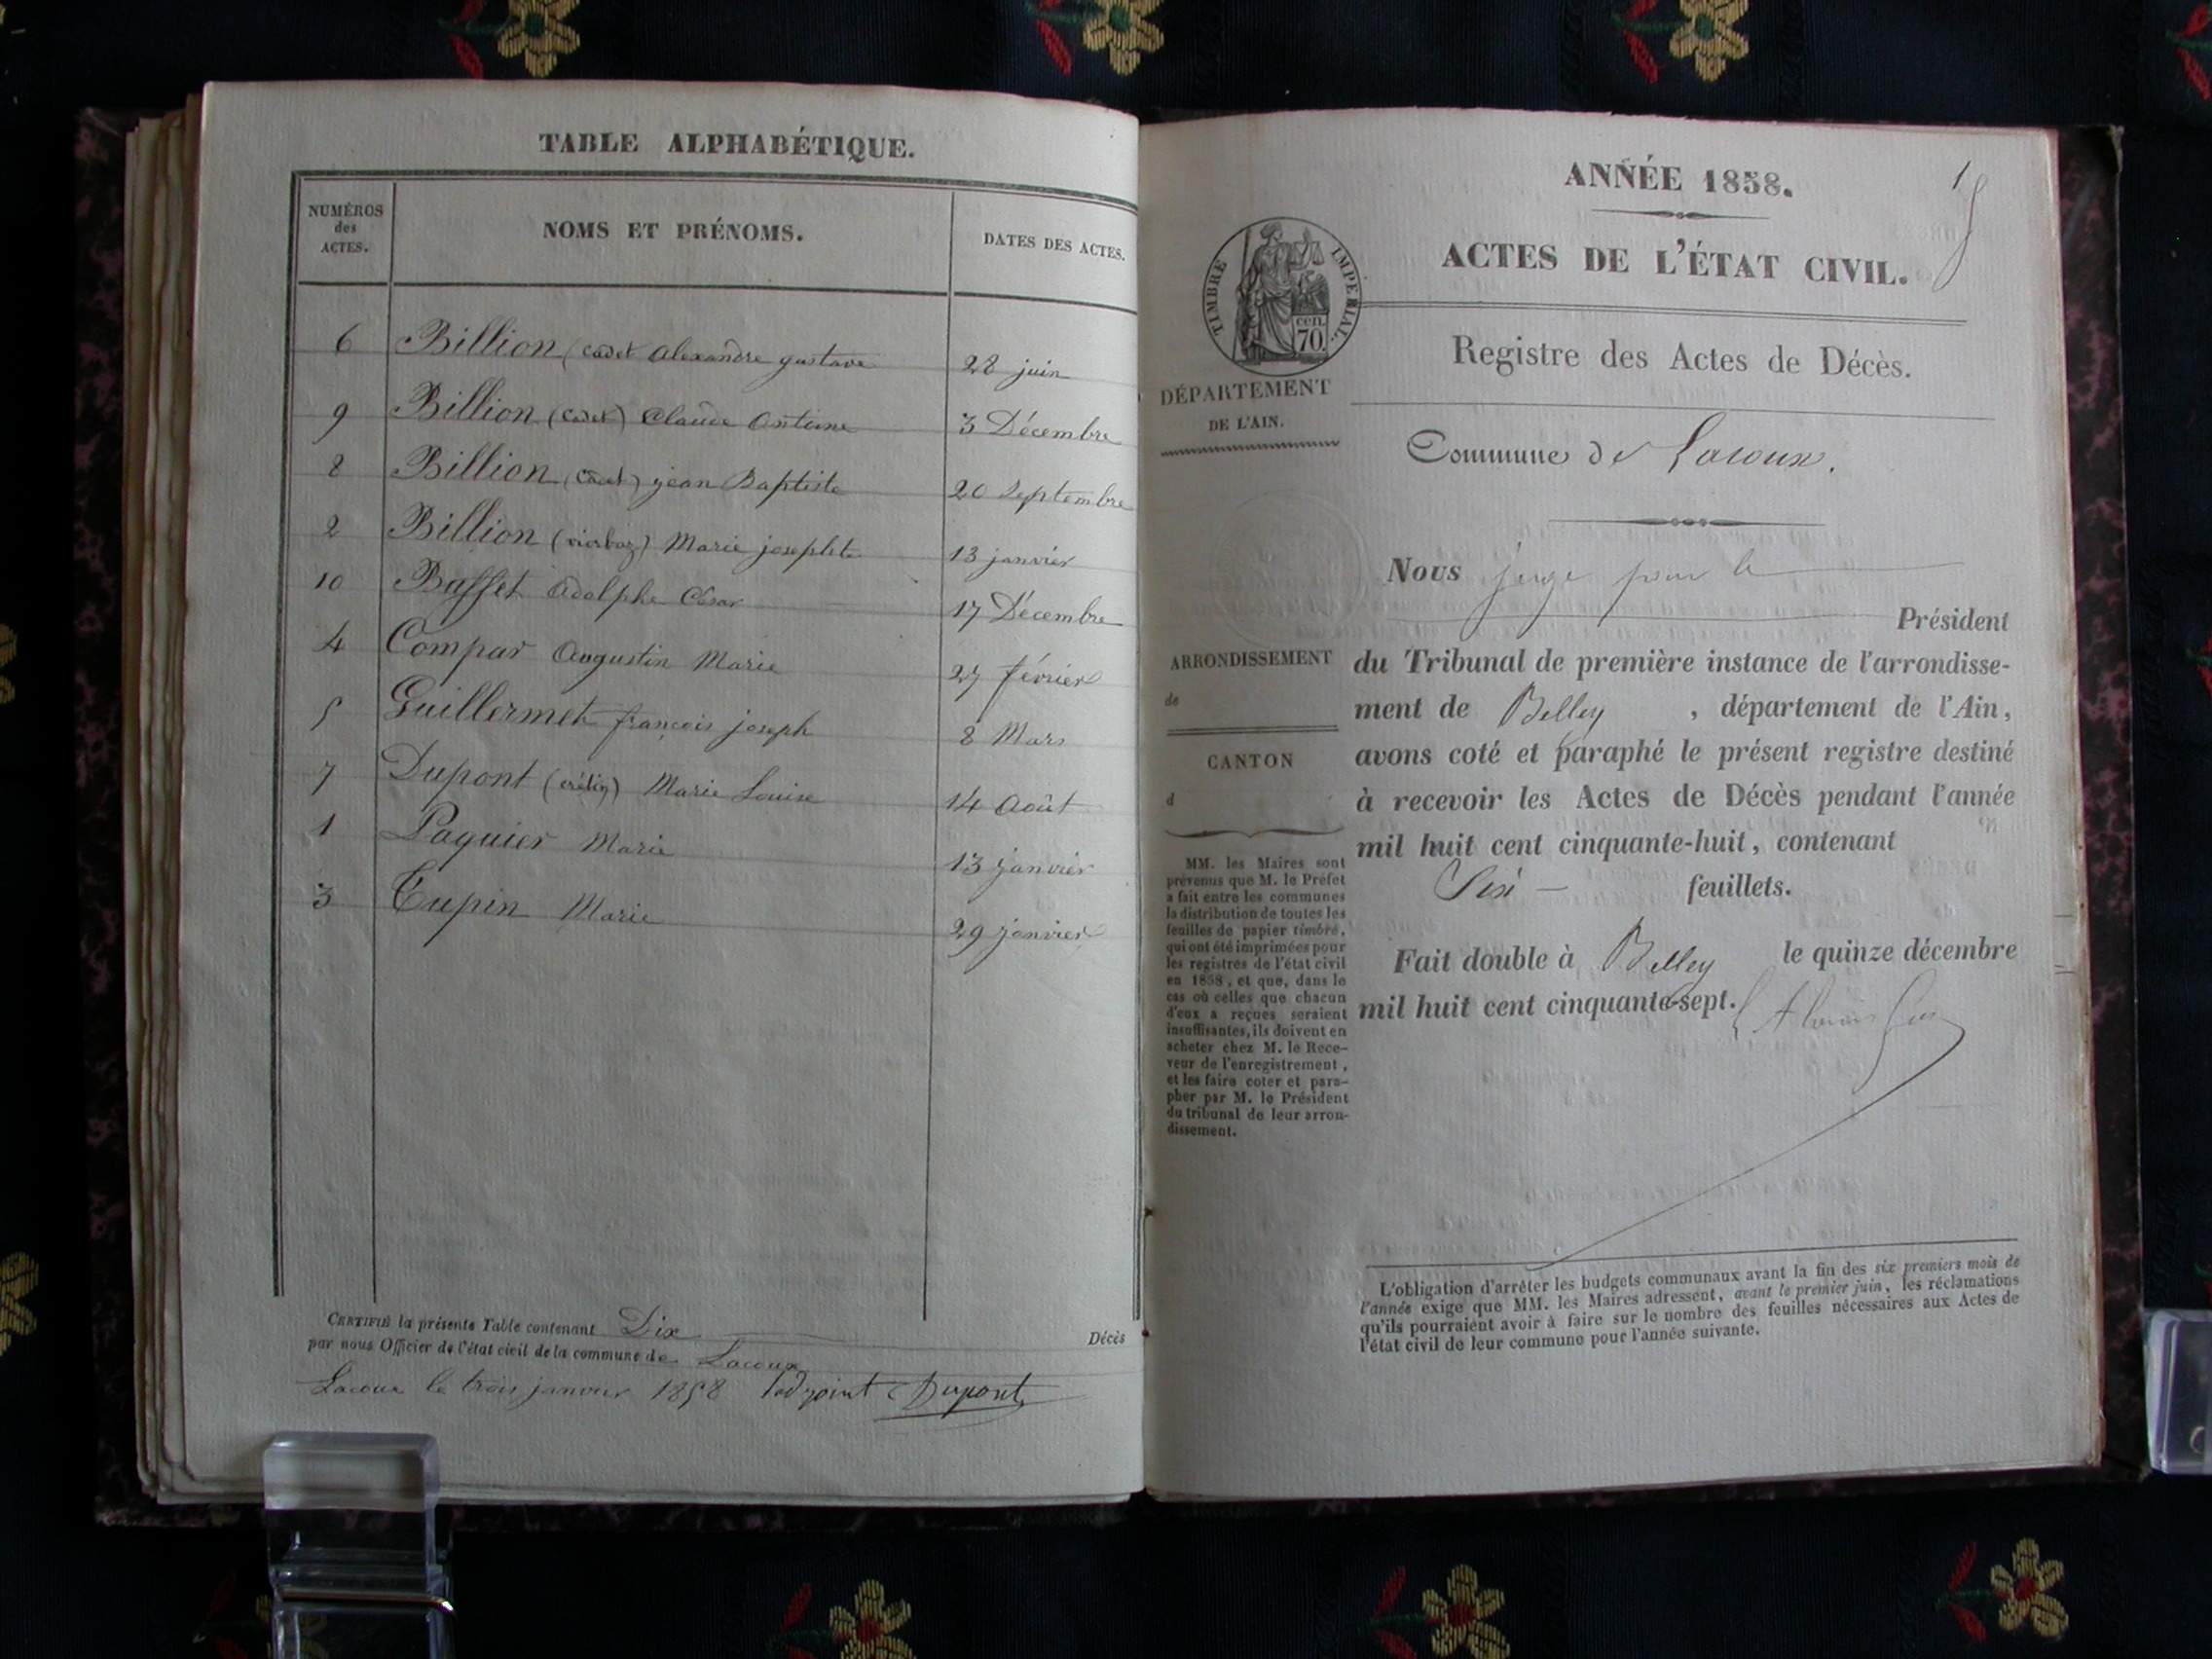 TABLE ALPHABÉTIQUE.
NUMÉROS
des
ACTES.
NOMS ET PRÉNOMS.
DATES DES ACTES.
6 Billion (cadet alexandre gustave 28 juin
9 Billion (cadet) Claude Antoine 3 Décembre
8 Billion (cadet) jean Baptiste 20 Septembre
2 Billion Marie josephte 13 janvier
10 Buffet Adolphe César 17 Décembre
4 Compar Augustin Marie 27 février
5 Guillermet françois joseph 8 Mars
7 Dupont Marie Louise 14 Août
1 Paquier Marie 13 janvier
3 Tupin Marie 29 janvier
CERTIFIÉ la présente Table contenant Dix Décès
par nous Officier de l'état civil de la commune de Lacoux
Lacoux le trois janvier 1858 l'adjoint Dupont
ANNÉE 1858.
1
ACTES DE L'ÉTAT CIVIL.
TIMBRE IMPERIAL.
cen.
70.
Registre des Actes de Décès.
DÉPARTEMENT
DE L'AIN.
Commune de Lacoux.
Nous juge pour le
Président
ARRONDISSEMENT
de
CANTON
d
du Tribunal de première instance de l'arrondisse-
ment de Belley , département de l'Ain,
avons coté et paraphé le présent registre destiné
à recevoir les Actes de Décès pendant l'année
mil huit cent cinquante-huit, contenant
Six feuillets.
Fait double à Belley le quinze décembre
mil huit cent cinquante-sept.
MM. les Maires sont
prévenus que M. le Préfet
a fait entre les communes
la distribution de toutes les
feuilles de papier timbré,
qui ont été imprimées pour
les registres de l'état civil
en 1858, et que, dans le
cas où celles que chacun
d'eux a reçues seraient
insuffisantes, ils doivent en
acheter chez M. le Rece-
veur de l'enregistrement,
et les faire coter et para-
pher par M. le Président
du tribunal de leur arron-
dissement.
L'obligation d'arrêter les budgets communaux avant la fin des six premiers mois de
l'année exige que MM. les Maires adressent, avant le premier juin, les réclamations
qu'ils pourraient avoir à faire sur le nombre des feuilles nécessaires aux Actes de
l'état civil de leur commune pour l'année suivante.